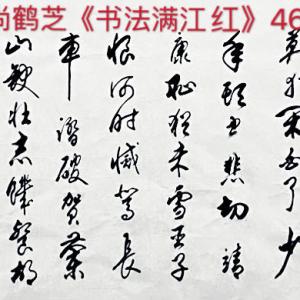 尚鹤芝《书法满江红》46
莫等闲白了少
年头空悲切靖
康恥犹未雪臣子
恨何时憾驾長
車踏破贺蘭
山缺壮志饑餐胡